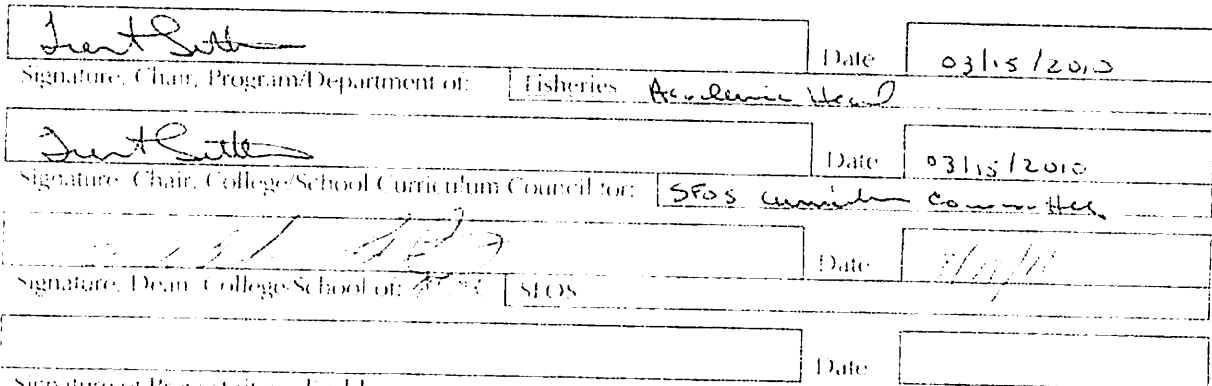 Trent Sutton Date 03/15/2010
Signature, Chair, Program/Department of: Fisheries Academic Head
Trent Sutton Date 03/15/2010
Signature, Chair, College/School Curriculum Council for: SFOS Curriculum Committee
Date
Signature, Dean, College/School of: SFOS
Date
Signature of